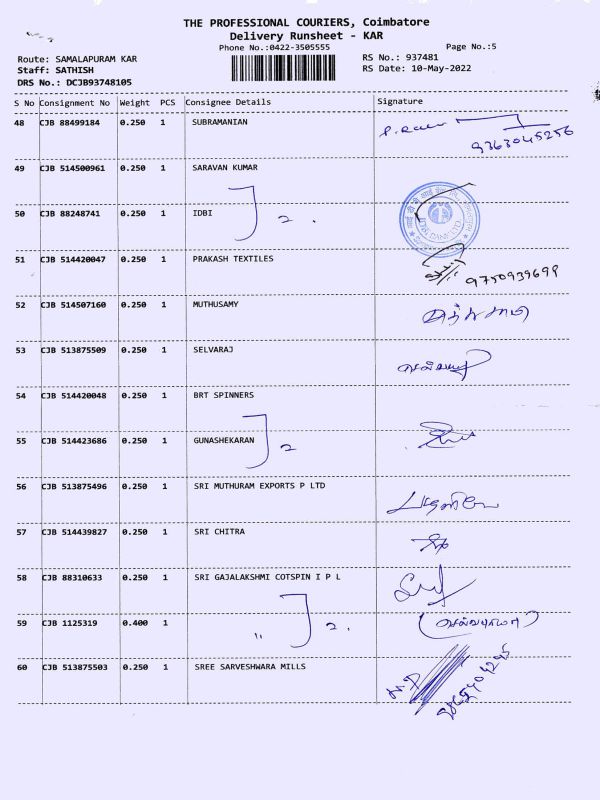 THE PROFESSIONAL COURIERS, Coimbatore
Delivery Runsheet - KAR
Phone No.:0422-3505555
Page No.:5
Route: SAMALAPURAM KAR
RS No.: 937481
Staff: SATHISH
RS Date: 10-May-2022
DRS No.: DCJB93748105
S No Consignment No Weight PCS Consignee Details Signature
48 CJB 88499184 0.250 1 SUBRAMANIAN
9363045256
49 CJB 514500961 0.250 1 SARAVAN KUMAR
50 CJB 88248741 0.250 1 IDBI 2.
51 CJB 514420047 0.250 1 PRAKASH TEXTILES
9750939699
52 CJB 514507160 0.250 1 MUTHUSAMY
53 CJB 513875509 0.250 1 SELVARAJ
54 CJB 514420048 0.250 1 BRT SPINNERS
55 CJB 514423686 0.250 1 GUNASHEKARAN 2
56 CJB 513875496 0.250 1 SRI MUTHURAM EXPORTS P LTD
57 CJB 514439827 0.250 1 SRI CHITRA
58 CJB 88310633 0.250 1 SRI GAJALAKSHMI COTSPIN I P L
59 CJB 1125319 0.400 1 " 2.
60 CJB 513875503 0.250 1 SREE SARVESHWARA MILLS